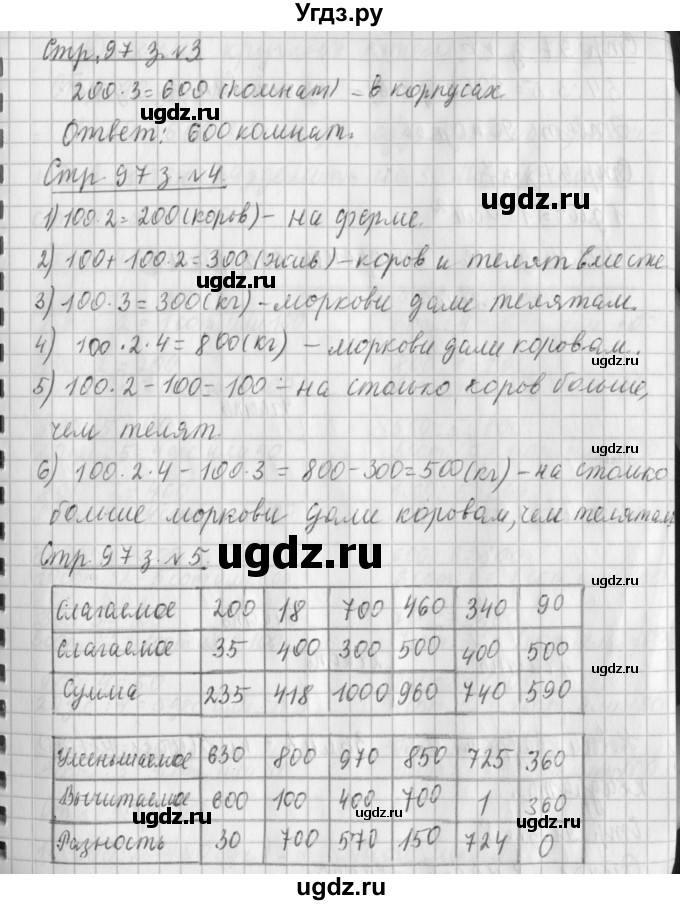 Угдз.ру
Стр. 97 з. №3
200·3=600 (комнат) - в корпусах
Ответ: 600 комнат.
ugdz.ru
Стр. 97 з. №4.
ugdz.ru
1) 100·2=200(коров)- на ферме.
2) 100+100·2=300(жив)-коров и телят вместе
ugdz.ru
3) 100·3=300(кг)-моркови дали телятам.
4) 100·2·4=800(кг) - моркови дали коровам.
5) 100·2-100=100 - на столько коров больше,
чем телят.
ugdz.ru
6) 100·2·4-100·3=800-300=500(кг)-на столько
больше моркови дали коровам, чем телятам.
ugdz.ru
Стр. 97 з. №5.
ugdz.ru
Слагаемое 200 18 700 460 340 90
Слагаемое 35 400 300 500 400 500
Сумма 235 418 1000 960 740 590
ugdz.ru
Уменьшаемое 630 800 970 850 725 360
Вычитаемое 600 100 400 700 1 360
ugdz.ru ugdz.ru
Разность 30 700 570 150 724 0
ugdz.ru